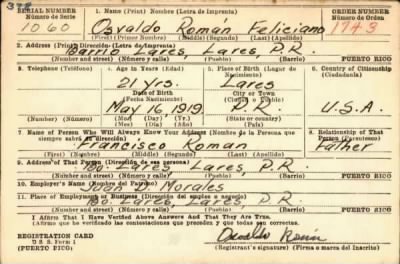 SERIAL NUMBER 1. Name (Print) Nombre (Letra de Imprenta) ORDER NUMBER
Número de Serie Número de Orden
1060 Osvaldo Román Feliciano 1743
(First) (Primer Nombre) (Middle) (Segundo) (Last) (Apellido)
2. Address (Print) Dirección (Letra de Imprenta)
Barrio Lares, Lares, P.R.
(Number and street) (Número y calle) (City or town) (Ciudad o Pueblo) PUERTO RICO
3. Telephone (Teléfono) 4. Age in Years (Edad) 5. Place of Birth (Lugar de Nacimiento) 6. Country of Citizenship (Ciudadanía)
21 Yrs. Lares
Date of Birth City or Town
(Fecha Nacimiento) (Ciudad o Pueblo)
May 16, 1919 P.R. U.S.A.
(Number) (Número) (Mo.) (Day) (Yr.) State or country)
(Mes) (Día) (Año) (País)
7. Name of Person Who Will Always Know Your Address (Nombre de la Persona que siempre sabrá su dirección) 8. Relationship of That Person (Parentesco)
Francisco Roman Father
(First) (Nombre) (Middle) (Segundo) (Last) (Apellido)
9. Address of That Person (Dirección de esa persona)
Lares, Lares, P.R.
(Number and street) (Número y calle) (City or town) (Ciudad o Pueblo) PUERTO RICO
10. Employer's Name (Nombre del Patrono)
Juan D. Morales
11. Place of Employment or Business (Dirección del empleo o negocio)
Lares, Lares, P.R.
(Number and street) (Número y calle) (City or town) (Ciudad o Pueblo) PUERTO RICO
I Affirm That I Have Verified Above Answers And That They Are True.
(Afirmo que he verificado las contestaciones que preceden y que todas son correctas).
REGISTRATION CARD
D S S. Form 1
(PUERTO RICO)
Osvaldo Román
(Registrant's signature) (Firma o marca del Inscrito)